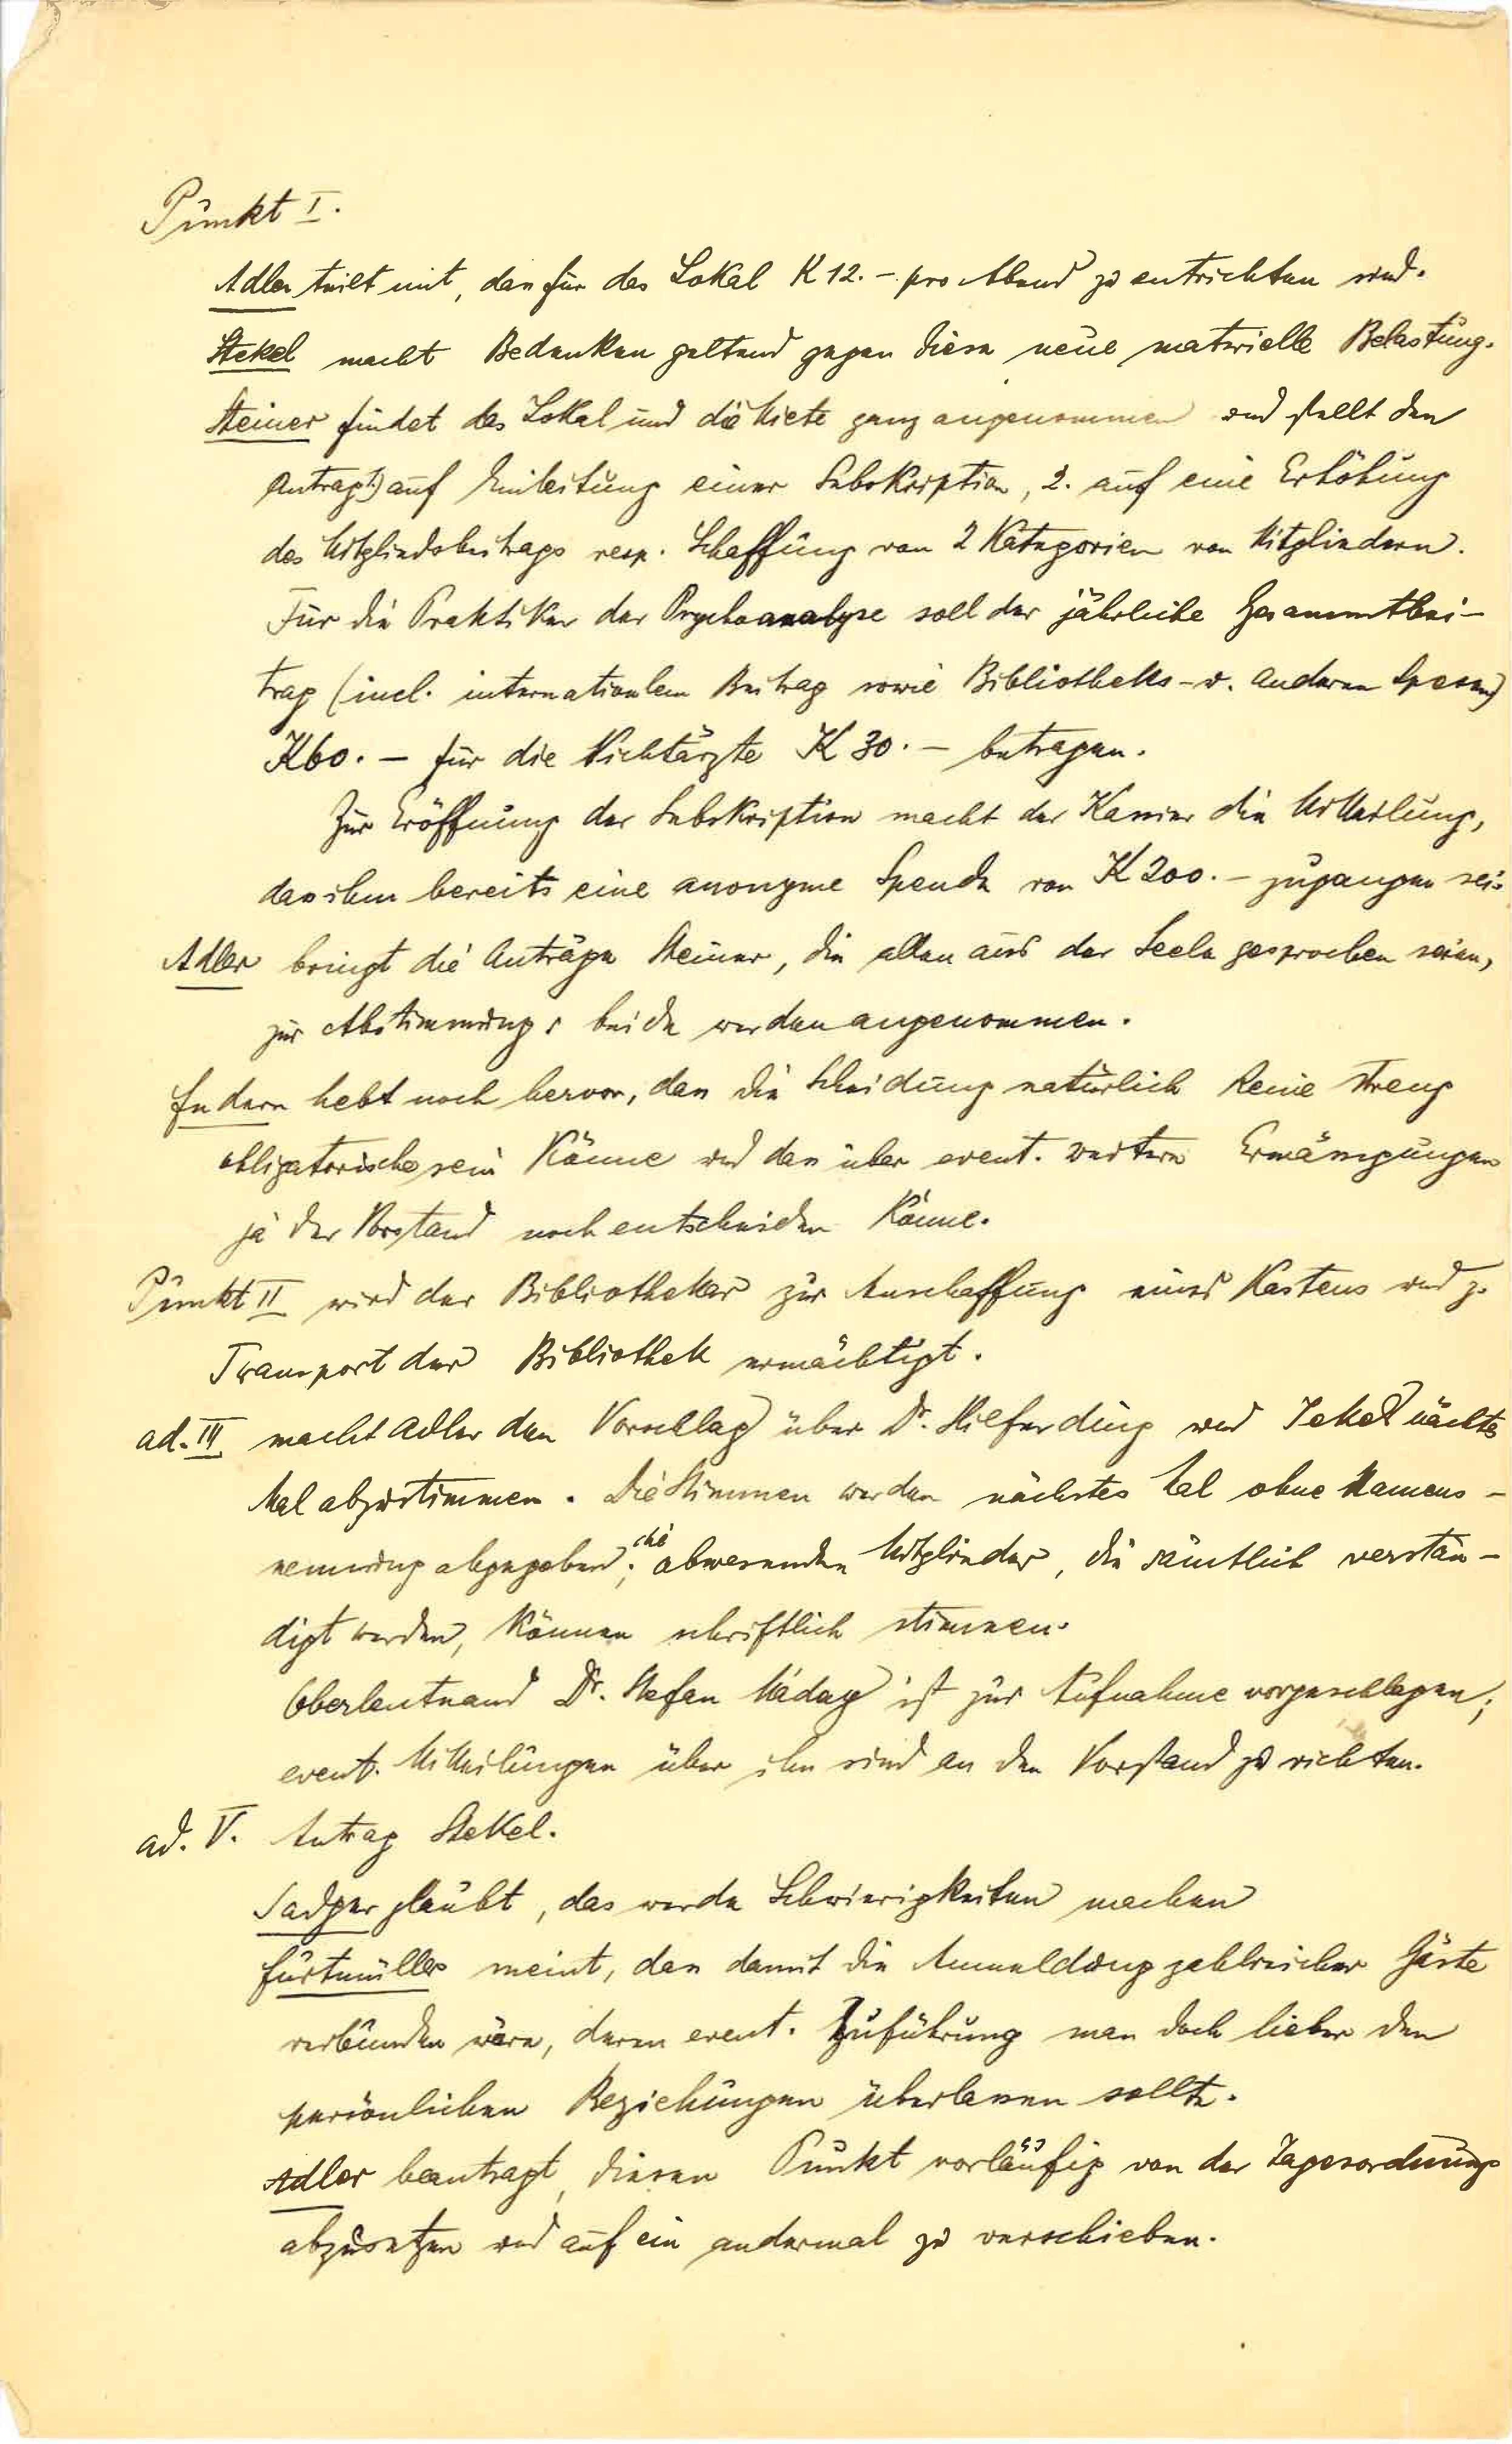 Punkt I.
Adler teilt mit, dass für das Lokal K 12.– pro Abend zu entrichten sind.
Stekel macht Bedenken geltend gegen diese neue materielle Belastung.
Steiner findet das Lokal und die Miete ganz angenommen und stellt den
Antrag 1) auf Einleitung einer Subskription, 2. auf eine Erhöhung
des Mitgliedsbeitrags resp. Schaffung von 2 Kategorien von Mitgliedern.
Für die Praktiker der Psychoanalyse soll der jährliche Gesammtbei-
trag (incl. internationalem Beitrag sowie Bibliotheks- u. anderen Spesen)
K 60.– für die Nichtärzte K 30.– betragen.
Zur Eröffnung der Subskription macht der Kassier die Mitteilung,
dass ihm bereits eine anonyme Spende von K 200.– zugangen sei.
Adler bringt die Anträge Steiner, die allen aus der Seele gesprochen seien,
zur Abstimmung; beide werden angenommen.
Federn hebt noch hervor, dass die Scheidung natürlich keine streng
obligatorische sein könne und dass über event. weitere Ermässigungen
ja der Vorstand noch entscheiden könne.
Punkt II wird der Bibliothekar zur Anschaffung eines Kastens und z.
Transport der Bibliothek ermächtigt.
ad. III macht Adler den Vorschlag über Dr. Hilferding und Jekel nächstes
Mal abzustimmen. Die Stimmen werden nächstes Mal ohne Namens-
nennung abgegeben; die abwesenden Mitglieder, die sämtlich verstän-
digt werden, können schriftlich stimmen.
Oberleutnand Dr. Stefan Máday ist zur Aufnahme vorgeschlagen;
event. Mitteilungen über ihn sind an den Vorstand zu richten.
ad. V. Antrag Stekel.
Sadger glaubt, das werde Schwierigkeiten machen
Furtmüller meint, dass damit die Anmeldung zahlreicher Gäste
verbunden wäre, deren event. Zuführung man doch lieber den
persönlichen Beziehungen überlassen sollte.
Adler beantragt, diesen Punkt vorläufig von der Tagesordnung
abzusetzen und auf ein andermal zu verschieben.